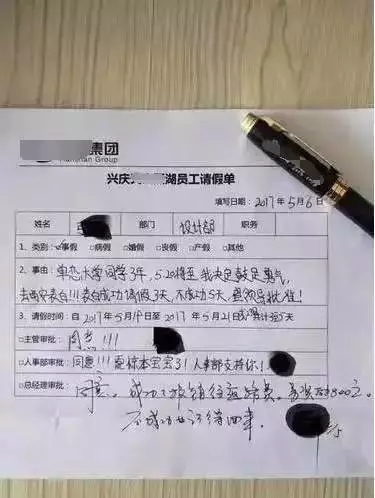 集团
Group
兴庆 湖员工请假单
填写日期：2017年5月6日
姓名 部门 设计部 职务
1、类别：☑事假 □病假 □婚假 □丧假 □产假 □其他
2、事由：单恋大学同学3年，5.20将至，我决定鼓足勇气，
去西安表白!!!表白成功请假3天，不成功5天，望领导批准！
3、请假时间：自2017年5月19日至2017年5月21日 累计 5天
□主管审批：同意!!!
□人事部审批：同意!! 本宝宝了！人事部支持你！
□总经理审批：同意。成功了报销往返路费。
不成功也 回来。